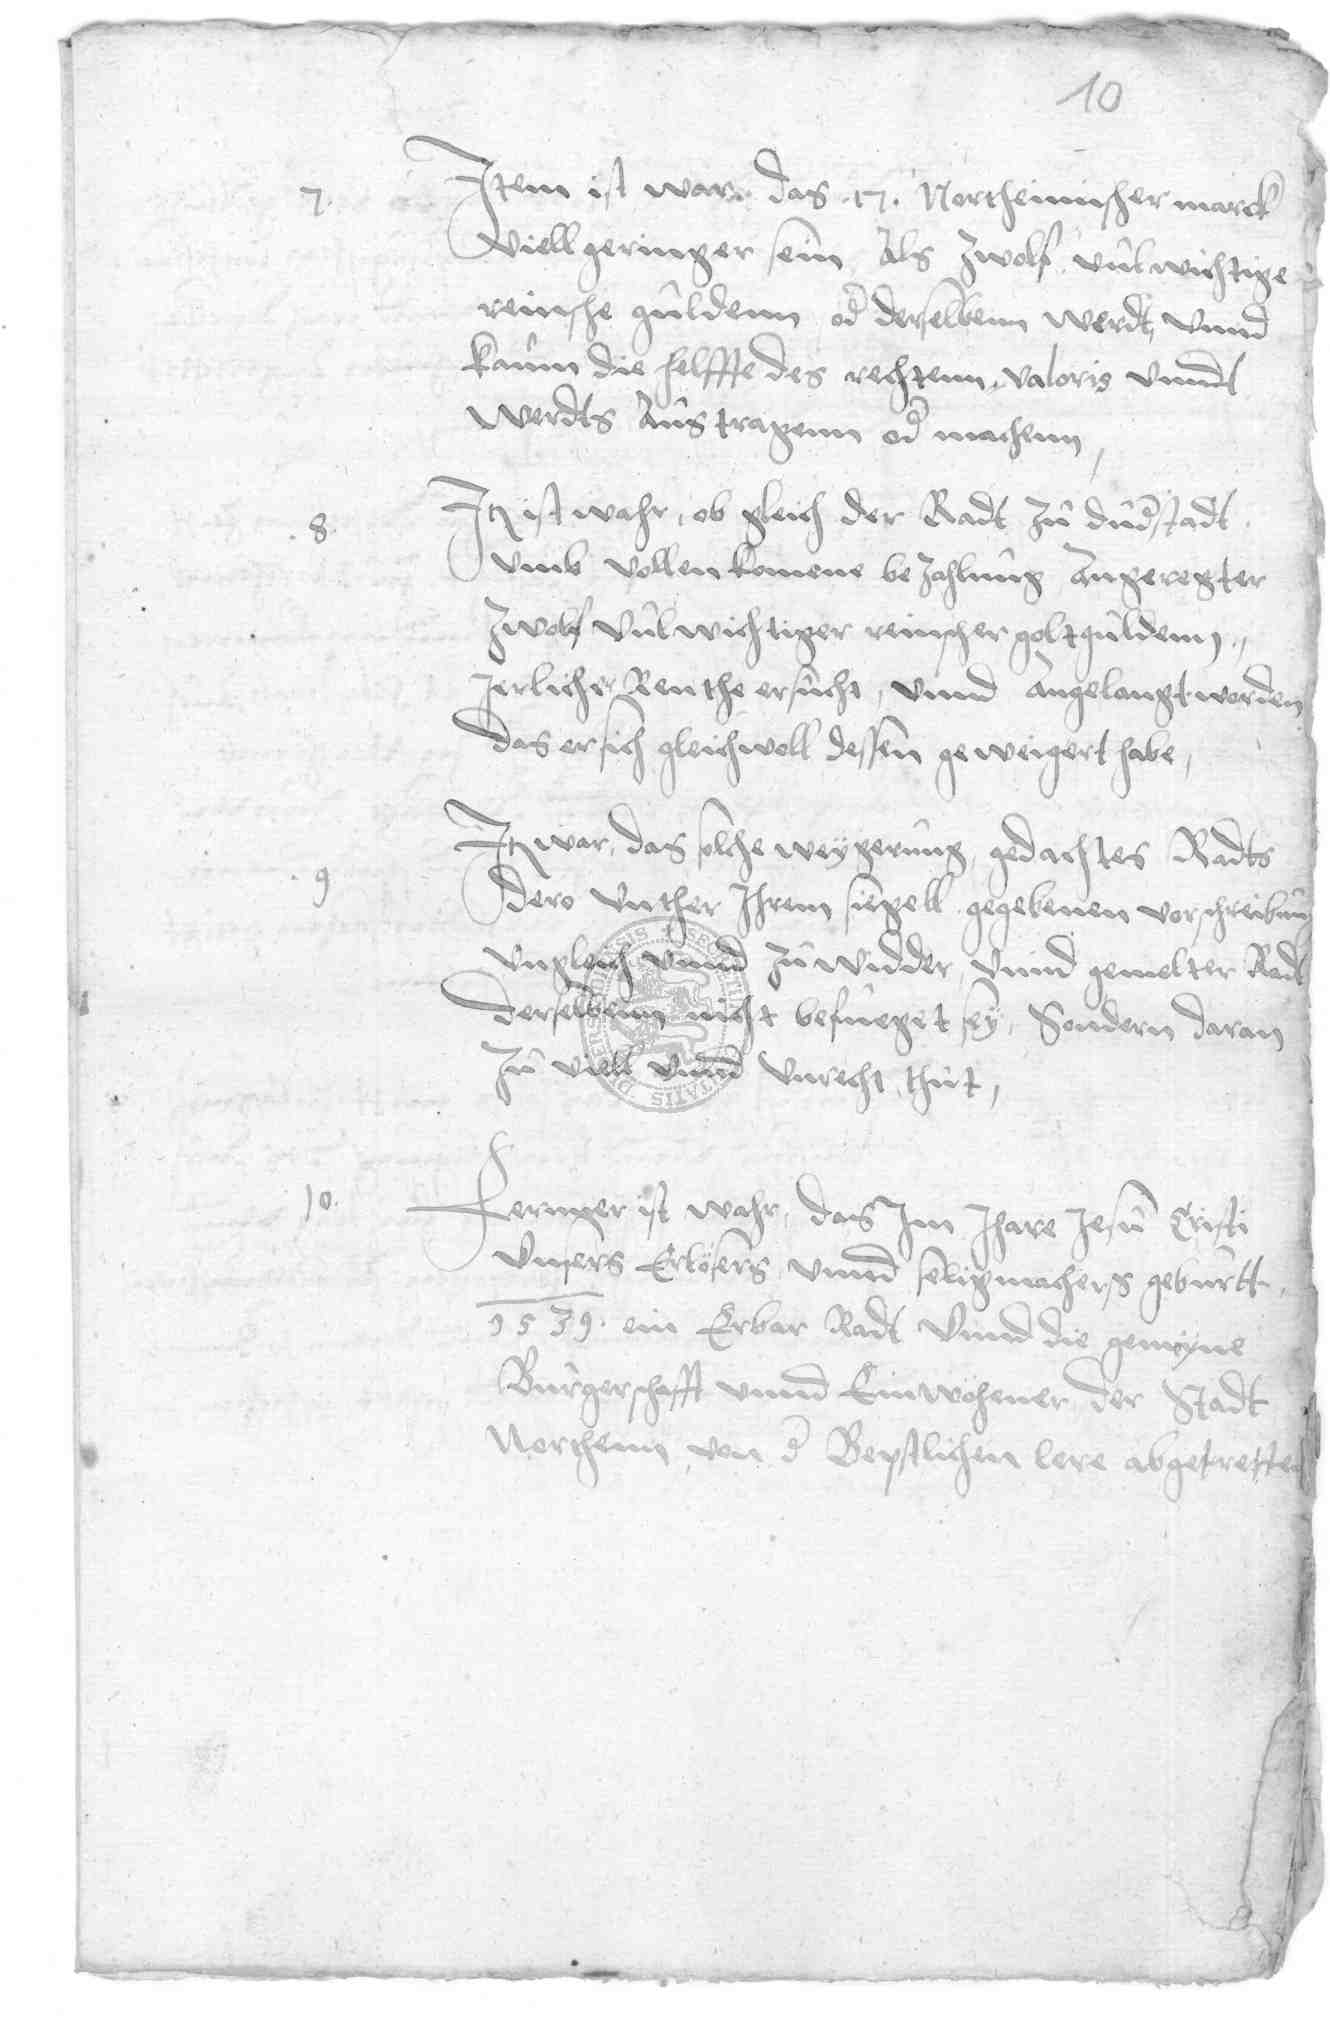 10
7. Item ist war. das .17. Northeimischer marck
viell geringer sein Als zwolf vulwichtige
reinsche guldenn od derselbenn werdt, vnnd
kaum die helffte des rechtenn valoris vnndt
werdts Austragenn od machenn,
8. Itz ist wahr, ob gleich der Radt zu dudstadt
vmb vollenkomene bezahlung Angeregter
zwolf vulwichtiger reinscher goltguldenn,
Jerlicher Renthe ersucht, vnnd angelangt worden
das er sich gleichwoll dessen geweigert habe,
9 Itz war, das solche weygerung, gedachtes Radts
dero vnther Ihrem siegell gegebenen vorschreibung
vngleich vnnd zuwidder, vnnd gemelter Radt
derselbenn nicht befueget sey, Sondern daran
zu viell vnnd vnrecht thut,
10. Fernner ist wahr, das Im Ihare Jesu Cristi
vnsers Erlosers vnnd seligmachers geburtt
1539. ein Erbar Radt vnnd die gemeyne
Burgerschafft vnnd Einwohener der Stadt
Northeim, von d Bepstlichen lere abgetretten